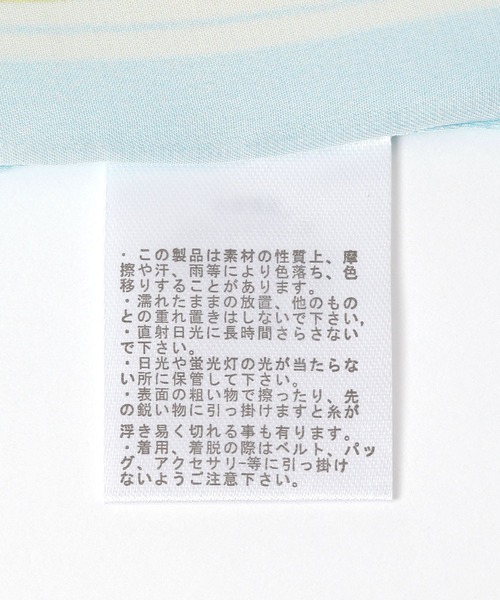 ・この製品は素材の性質上、摩
擦や汗、雨等により色落ち、色
移りすることがあります。
・濡れたままの放置、他のもの
との重れ置きはしないで下さい,
・直射日光に長時間さらさない
で下さい。
・日光や蛍光灯の光が当たらな
い所に保管して下さい。
・表面の粗い物で擦ったり、先
の鋭い物に引っ掛けますと糸が
浮き易く切れる事も有ります。
・着用、着脱の際はベルト、バッ
グ、アクセサリー等に引っ掛け
ないようご注意下さい。